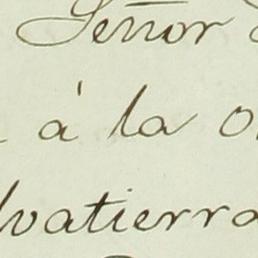 Señor
á la
lvatierra